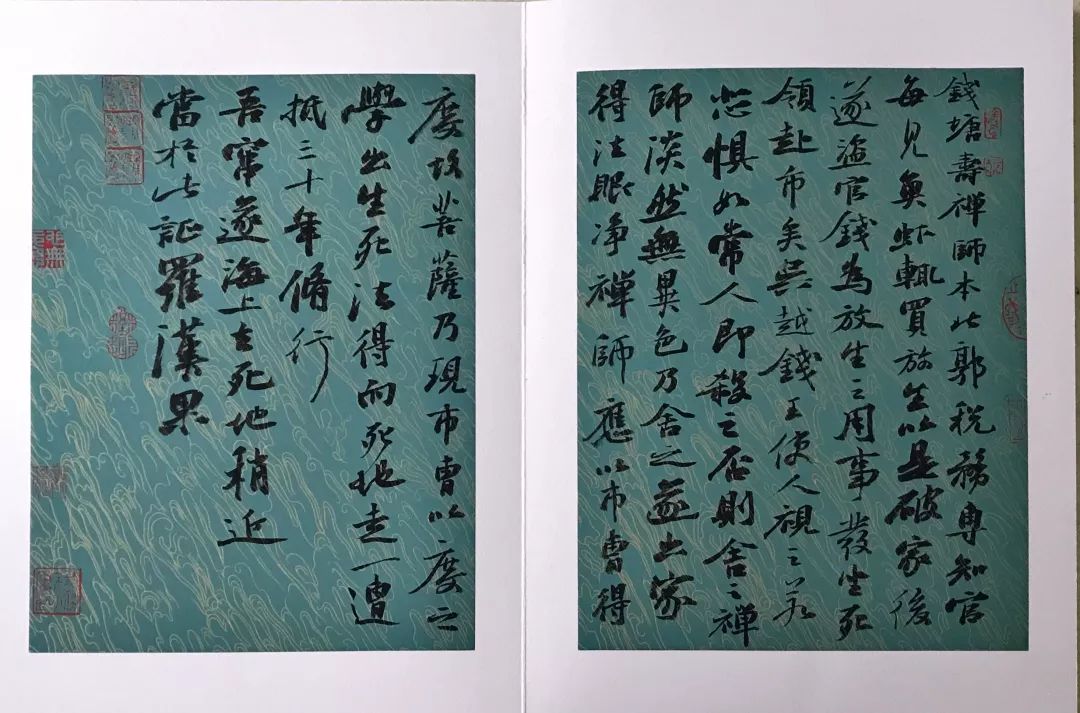 錢塘壽禪師本北郭稅務專知官
每見魚虾輒買放生以是破家後
遂盗官錢為放生之用事發坐死
領赴市矣吳越錢王使人視之若
悲懼如常人即殺之否則舍之禪
師淡然無異色乃舍之遂出家
得法眼净禪師應以市曹得
度故菩薩乃現市曹以度之
學出生死法得向死地走一遭
抵三十年脩行
吾竄逐海上去死地稍近
當於此証羅漢果